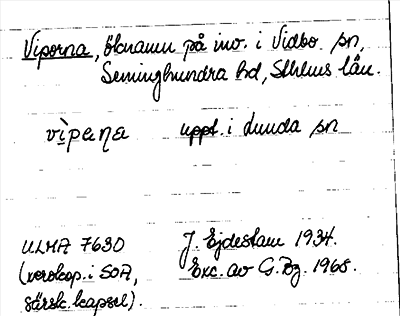 Viporna, öknamn på inv. i Vidbo sn,
Seminghundra hd, Sthlms län.
vìpaṇa uppt. i Lunda sn
ULMA 7630 J. Ejdestam 1934.
(xerokop. i SOA, Exc. av G.Bg. 1965.
särsk. kapsel).